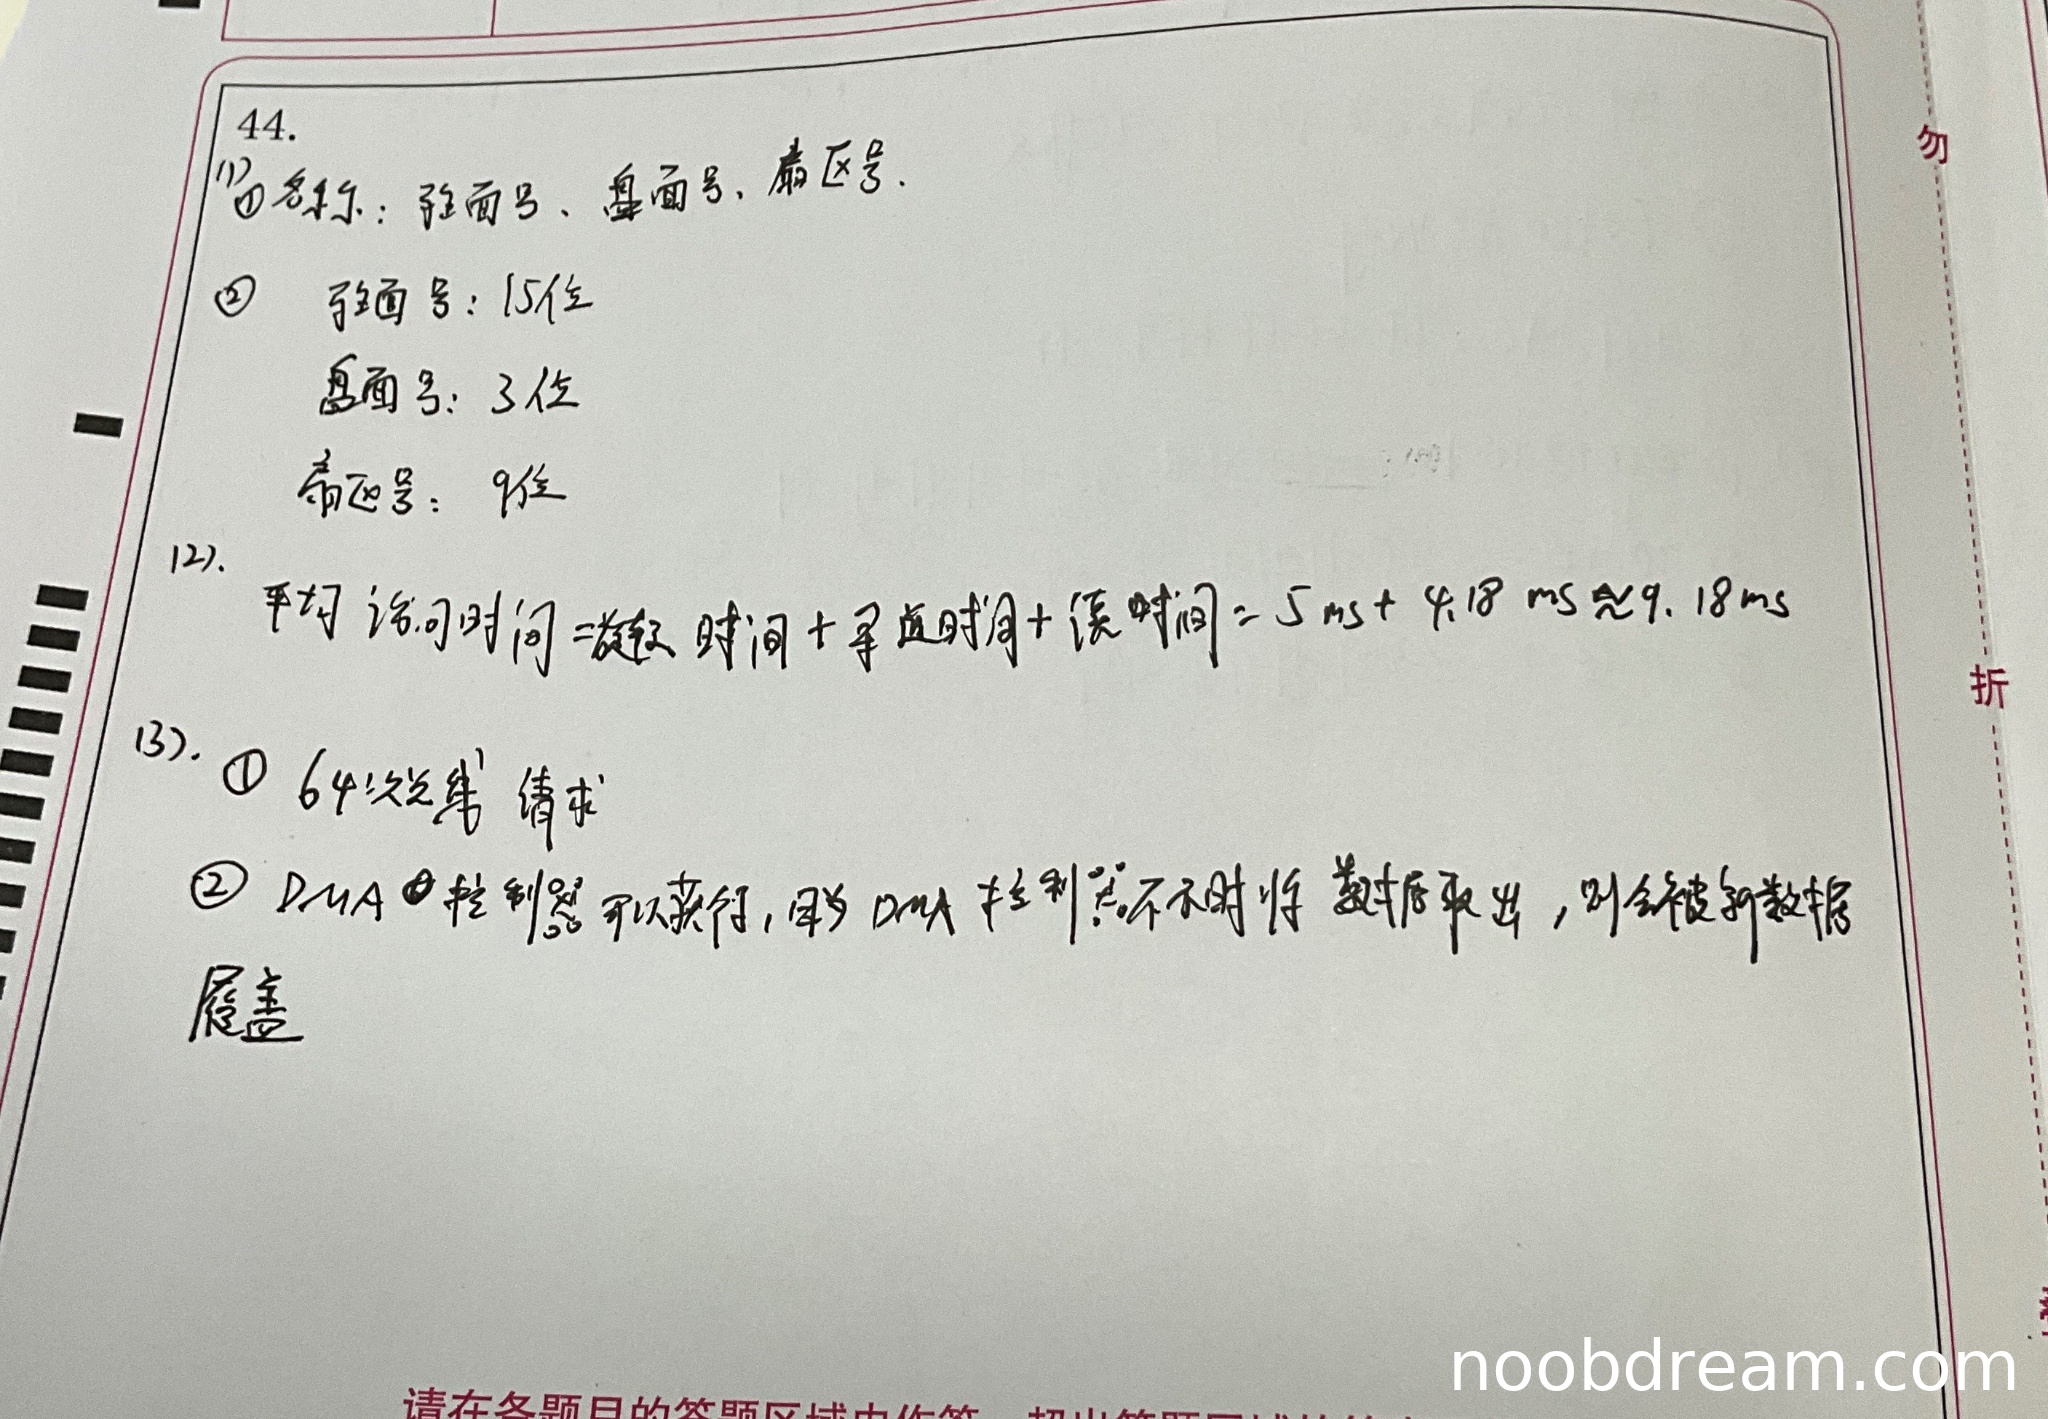 44.
(1) ① 名称：柱面号、盘面号、扇区号.
② 柱面号：15位
盘面号：3位
扇区号：9位
(2). 平均访问时间=旋转时间+寻道时间+读时间=5ms+4.18ms≈9.18ms
(3). ① 64次总线请求
② DMA控制器可以获得，因为DMA控制器不示时将数据取出，则会被新数据
履盖
勿
折
请在各题目的答题区域内作答，超出答题区域的
noobdream.com